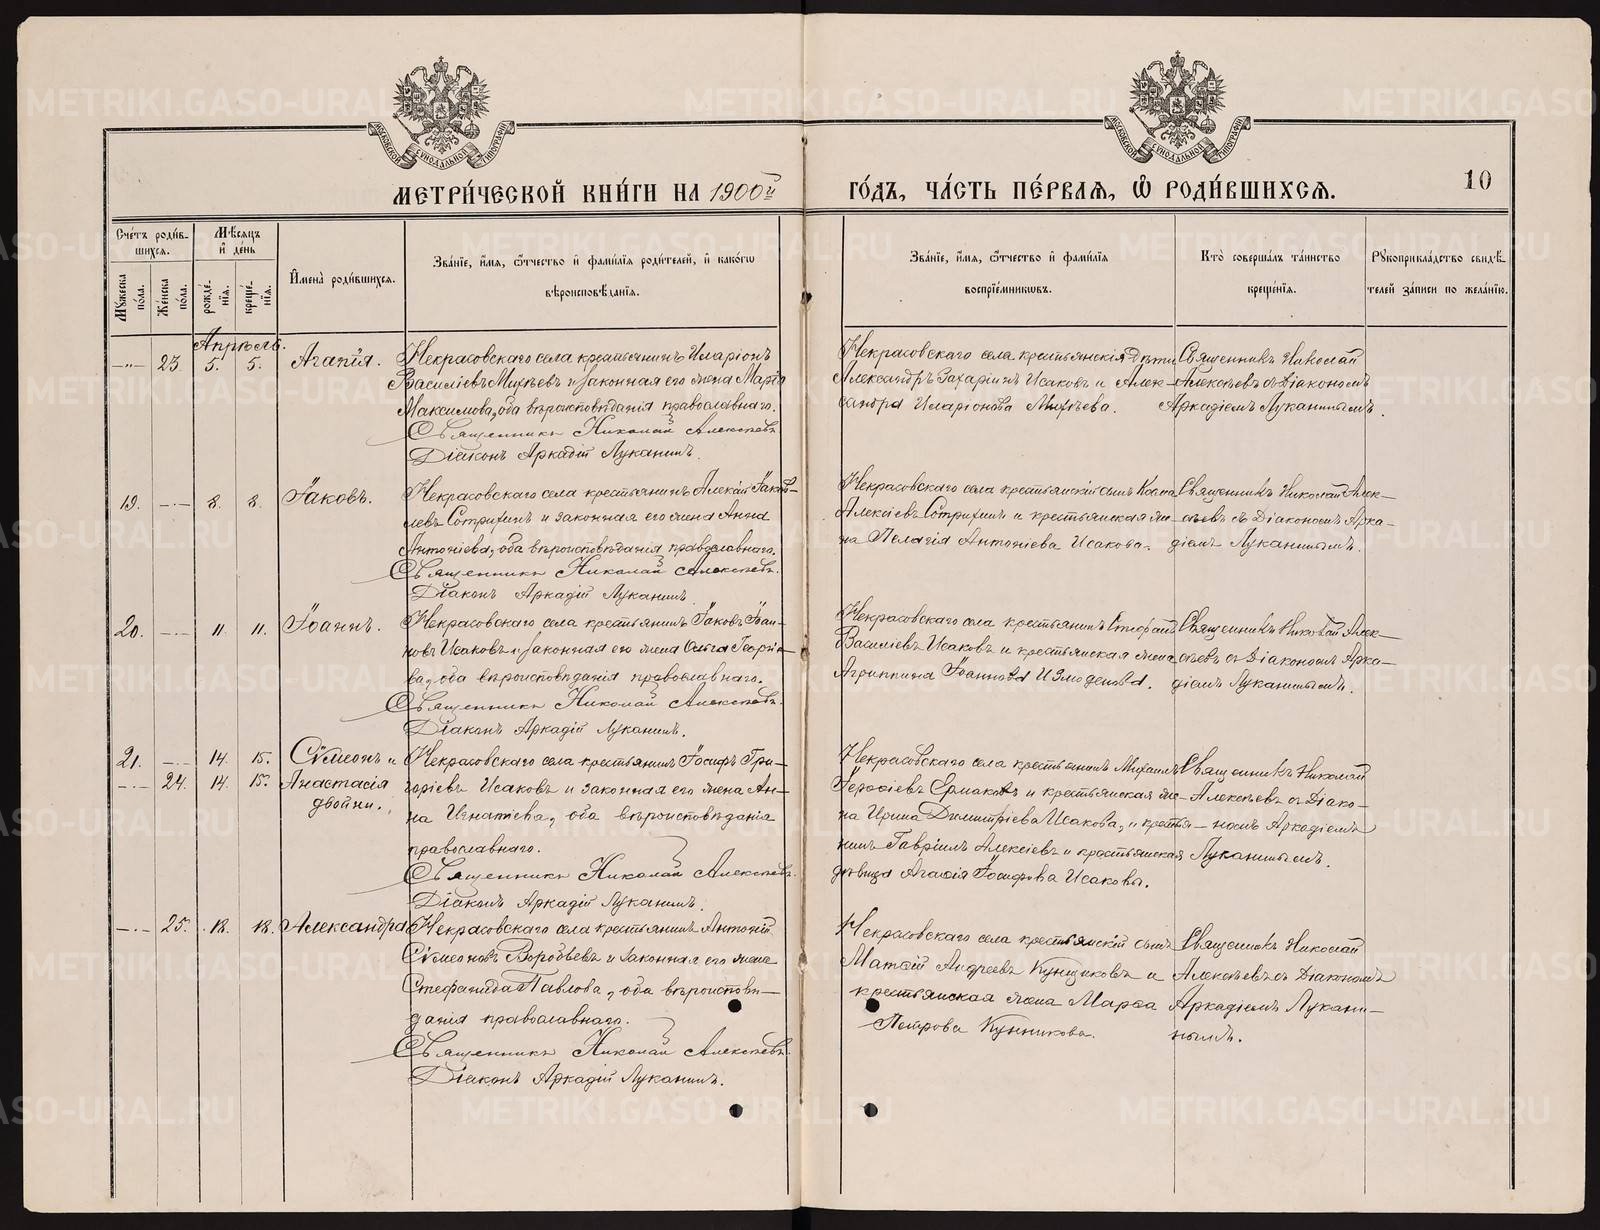 МЕТРИ́ЧЕСКОЙ КНИ́ГИ НА 1900й ГО́ДЪ, ЧА́СТЬ ПЕ́РВАѦ, Ѽ РОДИ́ВШИХСѦ.
10
Сче́тъ роди́в-
шихсѧ.
Мѣ́сѧцъ
и҆ де́нь
Мꙋ́жеска по́ла.
Же́нска по́ла.
рожде́-
нїѧ.
креще́-
нїѧ.
И҆мена̀ роди́вшихсѧ.
Зва́нїе, и҆́мѧ, ѻ҆́тчество и҆ фами́лїѧ роди́телей, и҆ како́гѡ
вѣроисповѣ́данїѧ.
Зва́нїе, и҆́мѧ, ѻ҆́тчество и҆ фами́лїѧ
воспрїе́мникѡвъ.
Кто̀ соверша́лъ та́инство
креще́нїѧ.
Рꙋкоприкла́дство свидѣ́-
телей за́писи по жела́нїю.
Апрѣль.
23. 5. 5. Агапія.
Некрасовскаго села крестьянинъ Иларіонъ
Василіевъ Михѣевъ и законная его жена Марія
Максимова, оба вѣроисповѣданія православнаго.
Священникъ Николай Алексѣевъ
Діаконъ Аркадій Луканинъ.
Некрасовскаго села крестьянскія дѣти
Александръ Захаріинъ Исаковъ и Алек-
сандра Иларіонова Михѣева.
Священникъ Николай
Алексѣевъ съ діакономъ
Аркадіемъ Луканинымъ.
19. 8. 8. Іаковъ.
Некрасовскаго села крестьянинъ Алексій Іаков-
левъ и законная его жена Анна
Антоніева, оба вѣроисповѣданія православнаго.
Священникъ Николай Алексѣевъ.
Діаконъ Аркадій Луканинъ
Некрасовскаго села крестьянскій сынъ Косма
Алексіевъ и крестьянская же-
на Пелагія Антоніева Исакова.
Священникъ Николай Алек-
сѣевъ съ діакономъ Арка-
діемъ Луканинымъ.
20. 11. 11. Іоаннъ.
Некрасовскаго села крестьянинъ Іаковъ Іоан-
новъ Исаковъ и законная его жена Ольга Георгіе-
ва, оба вѣроисповѣданія православнаго.
Священникъ Николай Алексѣевъ.
Діаконъ Аркадій Луканинъ.
Некрасовскаго села крестьянинъ Стефанъ
Василіевъ Исаковъ и крестьянская жена
Агриппина Іоаннова Измоденова.
Священникъ Николай Алек-
сѣевъ съ діакономъ Арка-
діемъ Луканинымъ.
21. 14. 15. Сѵмеонъ и
24. 14. 15. Анастасія
двойни.
Некрасовскаго села крестьянинъ Іосифъ Гри-
горіевъ Исаковъ и законная его жена Ан-
на Игнатіева, оба вѣроисповѣданія
православнаго.
Священникъ Николай Алексѣевъ.
Діаконъ Аркадій Луканинъ.
Некрасовскаго села крестьянинъ Михаилъ
Ермаковъ и крестьянская же-
на Ирина Димитріева Исакова, и крестья-
нинъ Гавріилъ Алексіевъ и крестьянская
дѣвица Агафія Іосифова Исаковы.
Священникъ Николай
Алексѣевъ съ діако-
номъ Аркадіемъ
Луканинымъ.
25. 18. 18. Александра
Некрасовскаго села крестьянинъ Антоній
Сѵмеоновъ Воробьевъ и законная его жена
Стефанида Павлова, оба вѣроисповѣ-
данія православнаго.
Священникъ Николай Алексѣевъ.
Діаконъ Аркадій Луканинъ.
Некрасовскаго села крестьянскій сынъ
Матѳій Андреевъ Кунщиковъ и
крестьянская жена Марѳа
Петрова Кунникова.
Священникъ Николай
Алексѣевъ съ діакономъ
Аркадіемъ Лукани-
нымъ.
METRIKI.GASO-URAL.RU